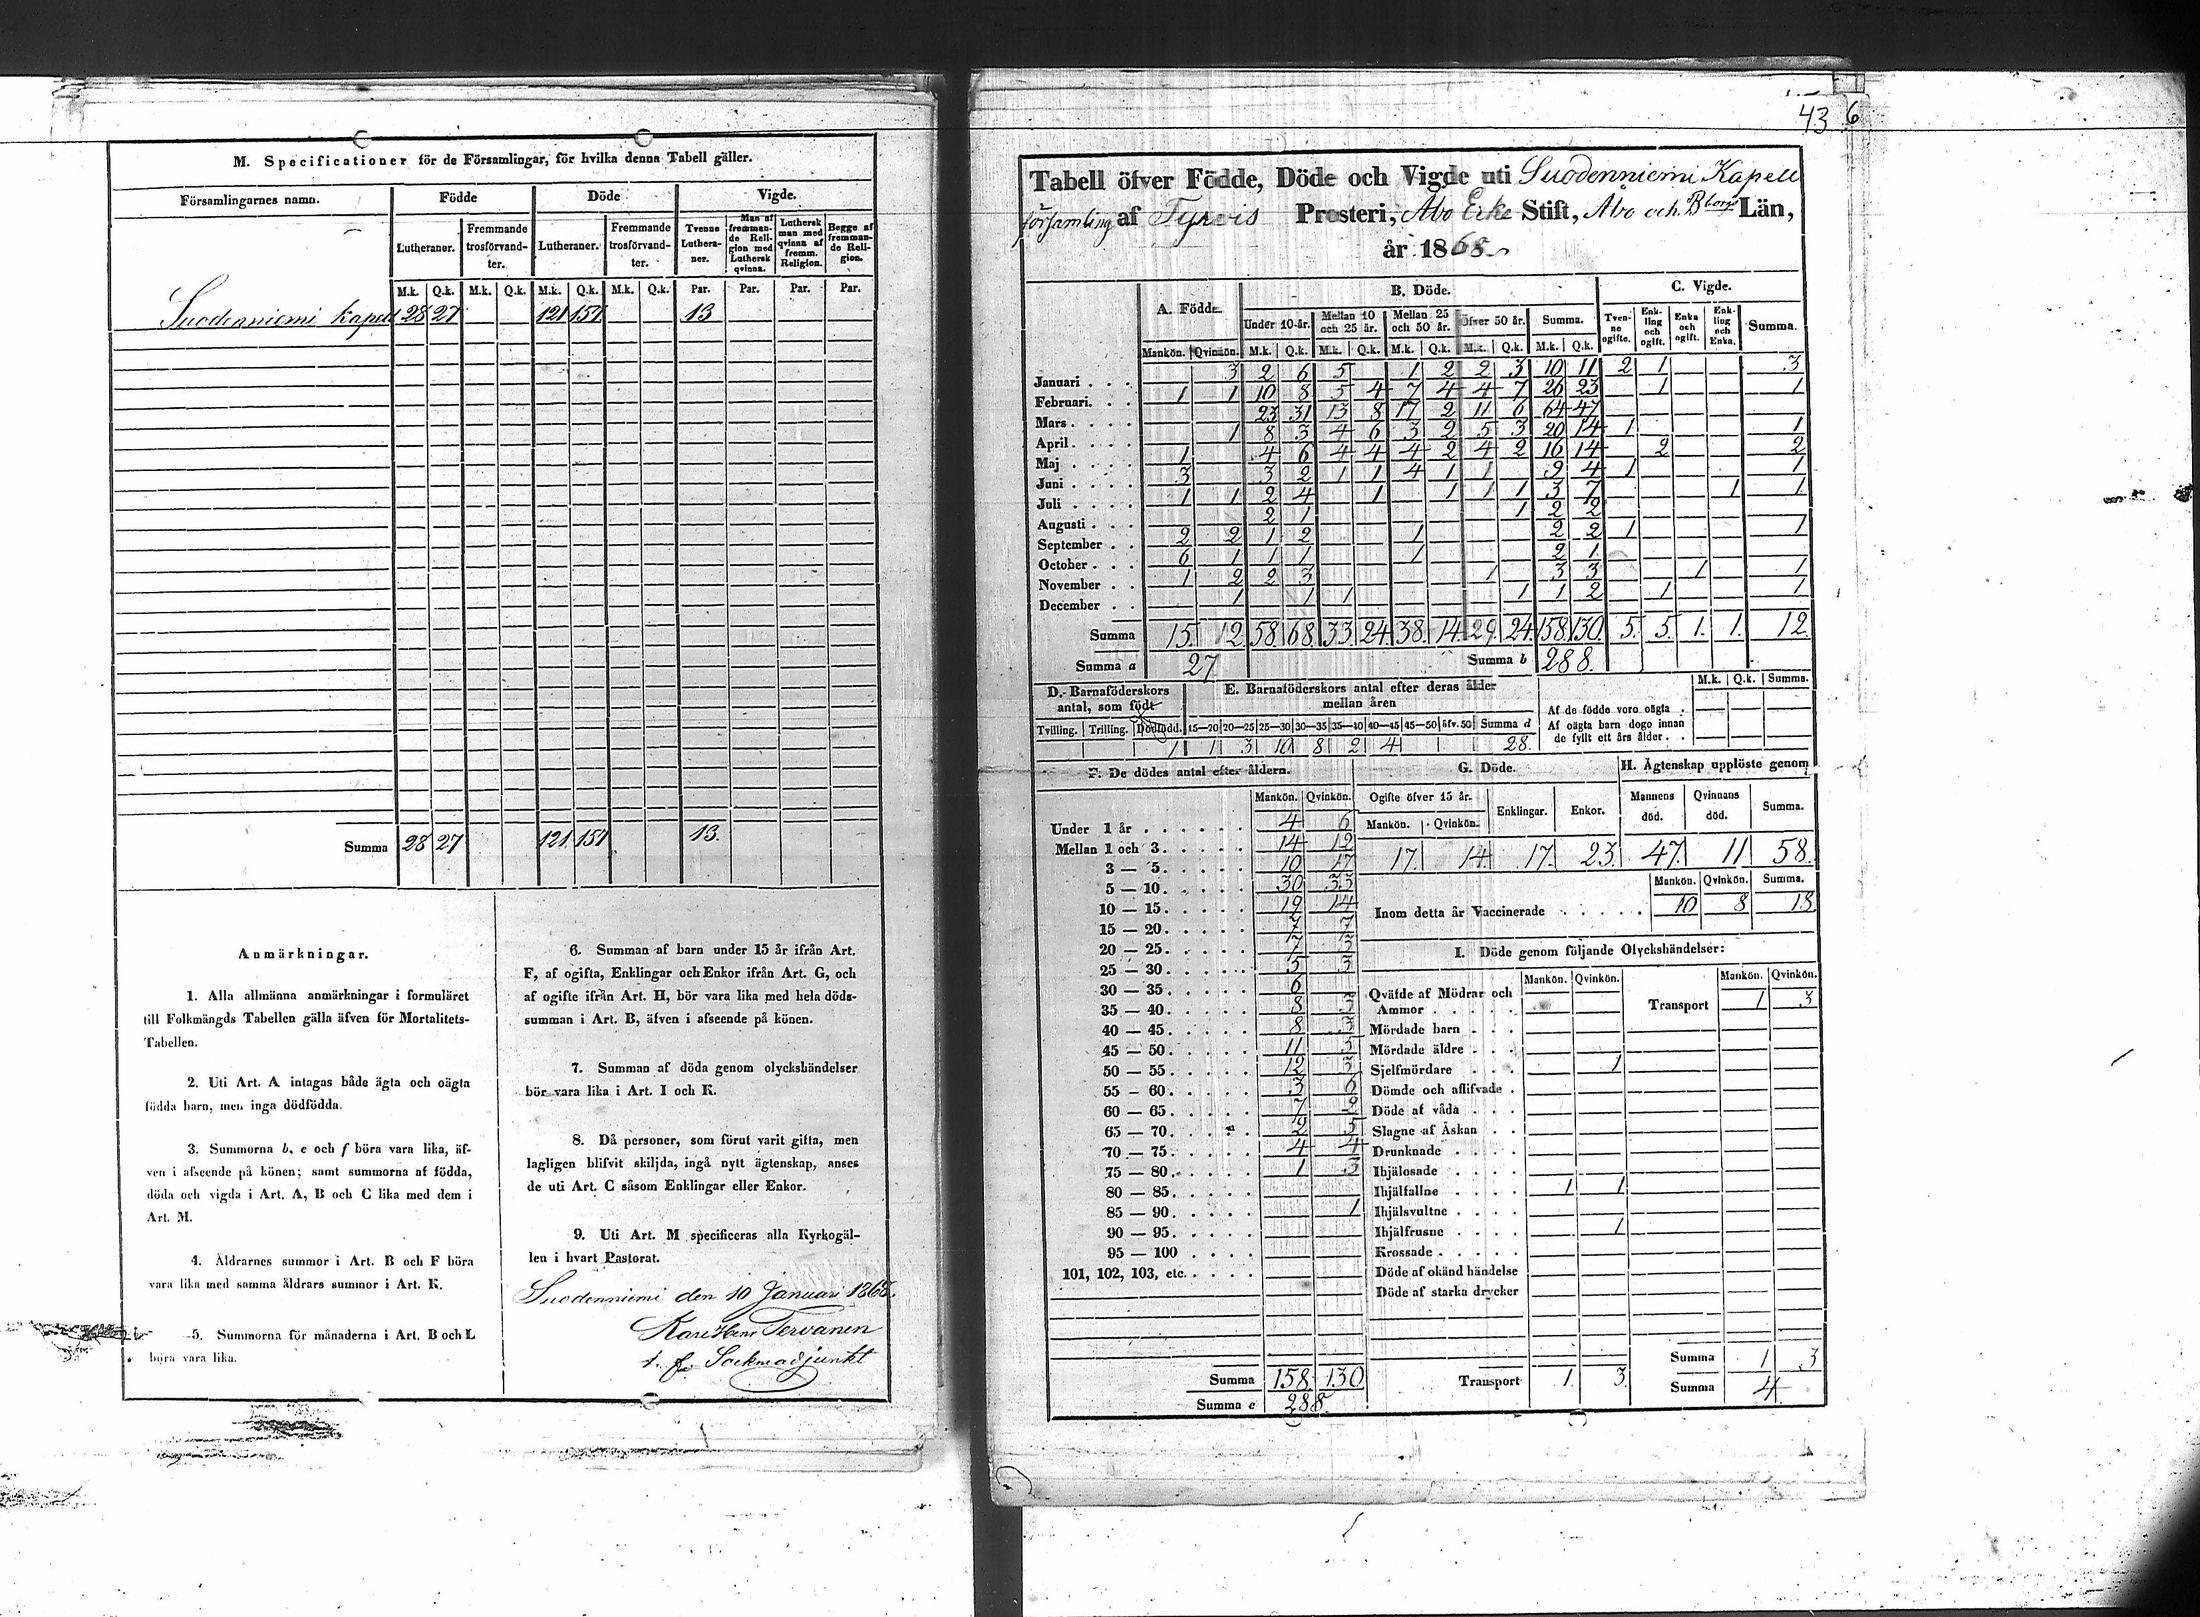 M. Specificationer för de Församlingar, för hvilka denna Tabell gäller.
Församlingarnes namn. Födde Döde Vigde.
Lutheraner. Fremmande trosförvand-ter. Lutheraner. Fremmande trosförvand-ter. Tvenne Luthera-ner. Man af fremman-de Reli-gion med Luthersk qvinna. Luthersk man med qvinna af fremm. Religion. Begge af fremman-de Reli-gion.
M.k. Q.k. M.k. Q.k. M.k. Q.k. M.k. Q.k. Par. Par. Par. Par.
Suodenniemi kapell 28 27 121 151 13
Summa 28 27 121 151 13.
Anmärkningar.
1. Alla allmänna anmärkningar i formuläret
till Folkmängds Tabellen gälla äfven för Mortalitets-
Tabellen.
2. Uti Art. A intagas både ägta och oägta
födda barn, men inga dödfödda.
3. Summorna b, e och f böra vara lika, äf-
ven i afseende på könen; samt summorna af födda,
döda och vigda i Art. A, B och C lika med dem i
Art. M.
4. Åldrarnes summor i Art. B och F böra
vara lika med samma åldrars summor i Art. K.
5. Summorna för månaderna i Art. B och L
böra vara lika.
6. Summan af barn under 15 år ifrån Art.
F, af ogifta, Enklingar och Enkor ifrån Art. G, och
af ogifte ifrån Art. H, bör vara lika med hela döds-
summan i Art. B, äfven i afseende på könen.
7. Summan af döda genom olyckshändelser
bör vara lika i Art. I och K.
8. Då personer, som förut varit gifta, men
lagligen blifvit skiljda, ingå nytt ägtenskap, anses
de uti Art. C såsom Enklingar eller Enkor.
9. Uti Art. M specificeras alla Kyrkogäl-
len i hvart Pastorat.
Suodenniemi den 10 Januari 1868.
Tervanen
t. f. Sockneadjunkt
43 6
Tabell öfver Födde, Döde och Vigde uti Suodenniemi Kapell
församling af Tyrvis Prosteri, Åbo Erke Stift, Åbo och Bborgs Län,
år 1868
A. Födde. B. Döde. C. Vigde.
Under 10-år. Mellan 10 och 25 år. Mellan 25 och 50 år. Öfver 50 år. Summa. Tven-ne ogifte. Enk-ling och ogift. Enka och ogift. Enk-ling och Enka. Summa.
Mankön. Qvinnön. M.k. Q.k. M.k. Q.k. M.k. Q.k. M.k. Q.k. M.k. Q.k.
Januari . . . 3 2 6 5 1 2 2 3 10 11 2 1 3
Februari. . . 1 1 10 8 5 4 7 4 4 7 26 23 1 1
Mars . . . . 23 31 13 8 17 2 11 6 64 47
April . . . . 1 8 3 4 6 3 2 5 3 20 14 1 1
Maj . . . . 1 4 6 4 4 4 2 4 2 16 14 2 2
Juni . . . . 3 3 2 1 1 4 1 1 9 4 1 1
Juli . . . . 1 1 2 4 1 1 1 1 3 7 1 1
Augusti . . . 2 1 1 2 2
September . . 2 2 1 2 1 2 2 1 1
October . . . 6 1 1 1 1 2 1
November . . 1 2 2 3 1 3 3 1 1
December . . 1 1 1 1 1 2 1 1
Summa 15. 12. 58. 68. 33. 24. 38. 14. 29. 24. 158. 130. 5. 5. 1. 1. 12.
Summa a 27 Summa b 288.
D. Barnaföderskors antal, som födt E. Barnaföderskors antal efter deras ålder mellan åren M.k. Q.k. Summa.
Tvilling. Trilling. Dödfödd. 15—20 20—25 25—30 30—35 35—40 40—45 45—50 öfv. 50 Summa d
1 1 3 10 8 2 4 28.
Af de födde voro oägta .
Af oägta barn dogo innan
de fyllt ett års ålder . .
F. De dödes antal efter åldern. G. Döde. H. Ägtenskap upplöste genom
Mankön. Qvinkön. Ogifte öfver 15 år. Enklingar. Enkor. Mannens död. Qvinnans död. Summa.
Mankön. Qvinkön.
17. 14. 17. 23. 47. 11 58.
Mankön. Qvinkön. Summa.
Inom detta år Vaccinerade . . . . . 10 8 18
Under 1 år . . . . . . 4 6
Mellan 1 och 3. . . . . 14 12
3 — 5. . . . . 10 17
5 — 10. . . . . 30 33
10 — 15. . . . . 19 14
15 — 20. . . . . 7 7
20 — 25. . . . . 7 3
25 — 30. . . . . 5 3
30 — 35. . . . . 6
35 — 40. . . . . 8 3
40 — 45. . . . . 8 3
45 — 50. . . . . 11 5
50 — 55. . . . . 12 3
55 – 60. . . . . 3 6
60 — 65. . . . . 7 2
65 — 70. . . . . 2 5
70 — 75. . . . . 4 4
75 — 80. . . . . 1 3
80 — 85. . . . .
85 — 90. . . . . 1
90 — 95. . . . .
95 — 100 . . . .
101, 102, 103, etc. . . . .
Summa 158. 130
Summa e 288.
I. Döde genom följande Olyckshändelser:
Mankön. Qvinkön. Mankön. Qvinkön.
Qväfde af Mödrar och
Ammor . . . . . Transport 1 3
Mördade barn . . .
Mördade äldre . . .
Sjelfmördare . . . 1
Dömde och aflifvade .
Döde af våda . . .
Slagne af Åskan . .
Drunknade . . . .
Ihjälosade . . . .
Ihjälfallne . . . . 1 1
Ihjälsvultne . . . .
Ihjälfrusne . . . . 1
Krossade . . . . .
Döde af okänd händelse
Döde af starka drycker
Summa 1 3
Transport 1. 3. Summa 4.